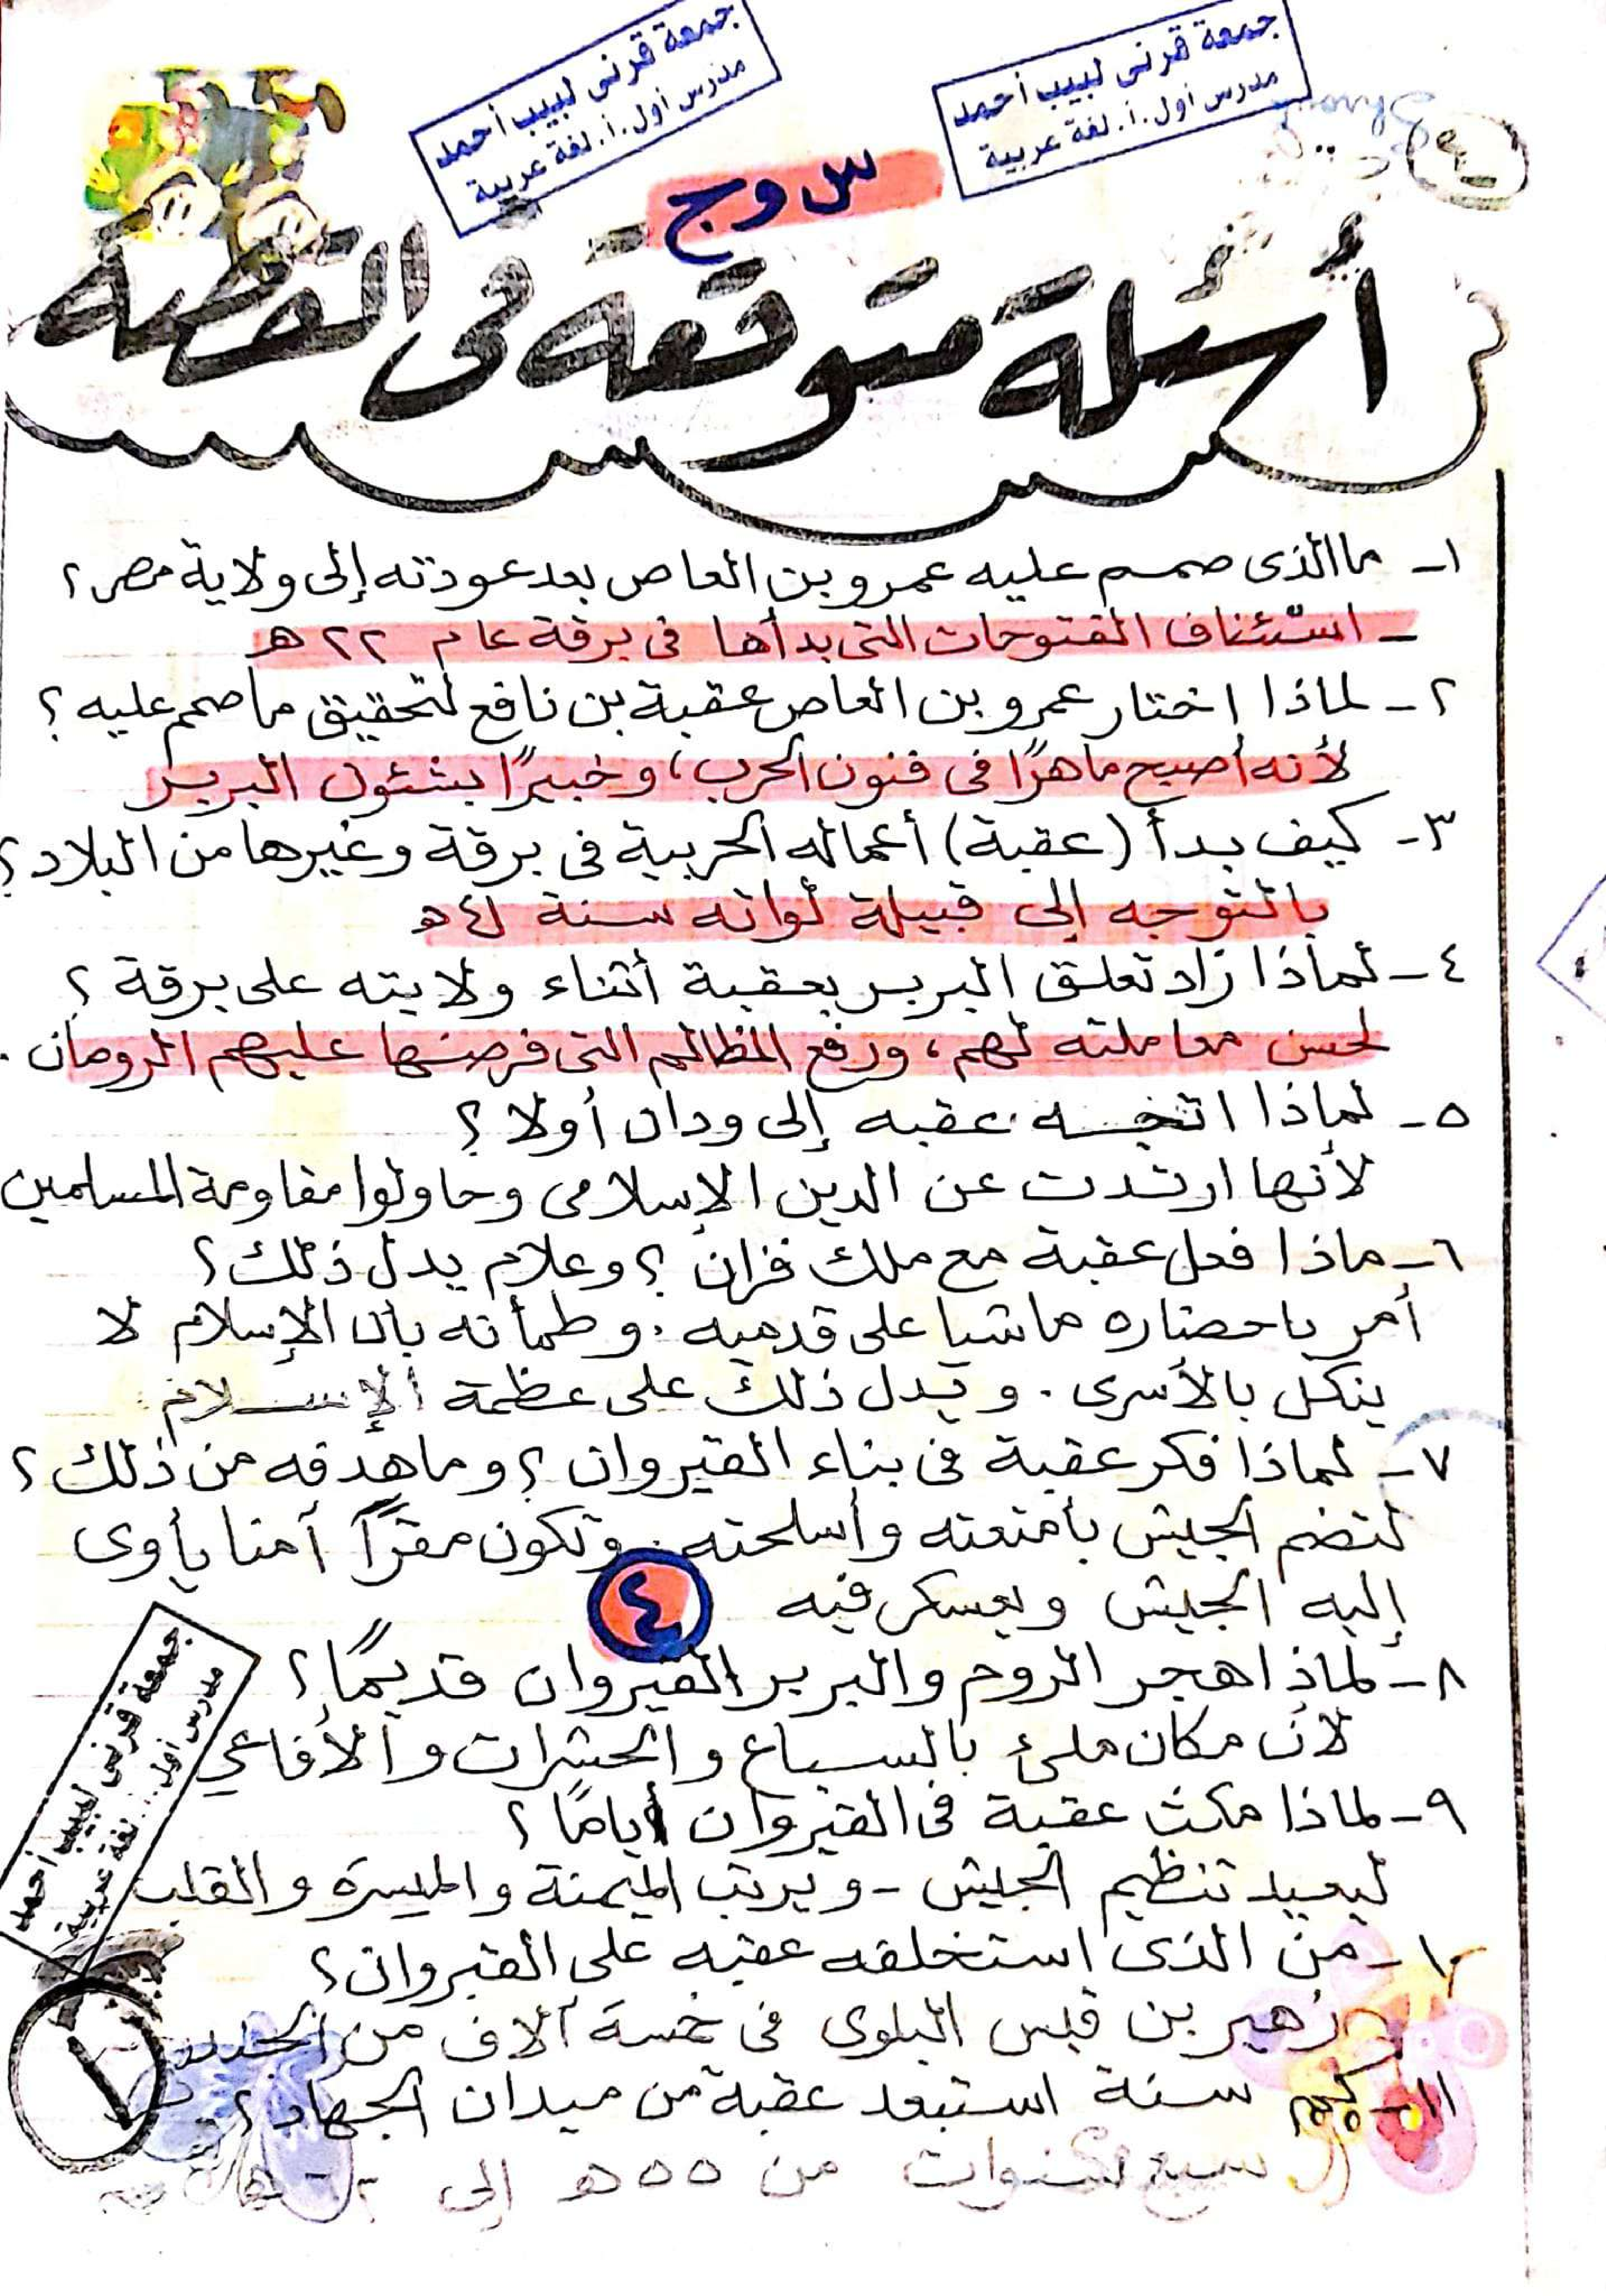 جمعة قرنى لبيب أحمد
مدرس أول.أ.لغة عربية
جمعة قرنى لبيب أحمد
مدرس أول.أ.لغة عربية
س وج
أسئلة متوقعة فى القصة
١- ما الذى صمم عليه عمرو بن العاص بعد عودته إلى ولاية مصر؟
- استئناف الفتوحات التى بدأها فى برقة عام ٢٢ هـ
٢- لماذا اختار عمرو بن العاص عقبة بن نافع لتحقيق ما صمم عليه؟
لأنه أصبح ماهرًا فى فنون الحرب، وخبيرًا بشئون البربر
٣- كيف بدأ (عقبة) أعماله الحربية فى برقة وغيرها من البلاد؟
بالتوجه إلى قبيلة لواته سنة ٤١هـ
٤- لماذا زاد تعلق البربر بعقبة أثناء ولايته على برقة؟
لحسن معاملته لهم، ورفع المظالم التى فرضها عليهم الرومان.
٥- لماذا اتجه عقبه إلى ودان أولا؟
لأنها ارتدت عن الدين الإسلامى وحاولوا مقاومة المسلمين
٦- ماذا فعل عقبة مع ملك فزان؟ وعلام يدل ذلك؟
أمر باحضاره ماشيا على قدميه. وطمأنه بأن الإسلام لا
ينكل بالأسرى. ويدل ذلك على عظمة الإسلام
٧- لماذا فكر عقبة فى بناء القيروان؟ وما هدفه من ذلك؟
لتضم الجيش بأمتعته وأسلحته. وتكون مقرًا آمنا يأوى
إليه الجيش ويعسكر فيه
٤
٨- لماذا هجر الروم والبربر القيروان قديمًا؟
لأن مكان ملئ بالسباع والحشرات والأفاعي
٩- لماذا مكث عقبة فى القيروان أيامًا؟
ليعيد تنظيم الجيش - ويرتب الميمنة والميسرة والقلب
جمعة قرنى لبيب أحمد
مدرس أول.أ.لغة عربية
١٠- من الذى استخلفه عقبه على القيروان؟
زهير بن قيس البلوى فى خمسة آلاف من الجند
١١- كم سنة استبعد عقبة من ميدان الجهاد؟
سبع سنوات من ٥٥ هـ إلى ٦٢ هـ
١